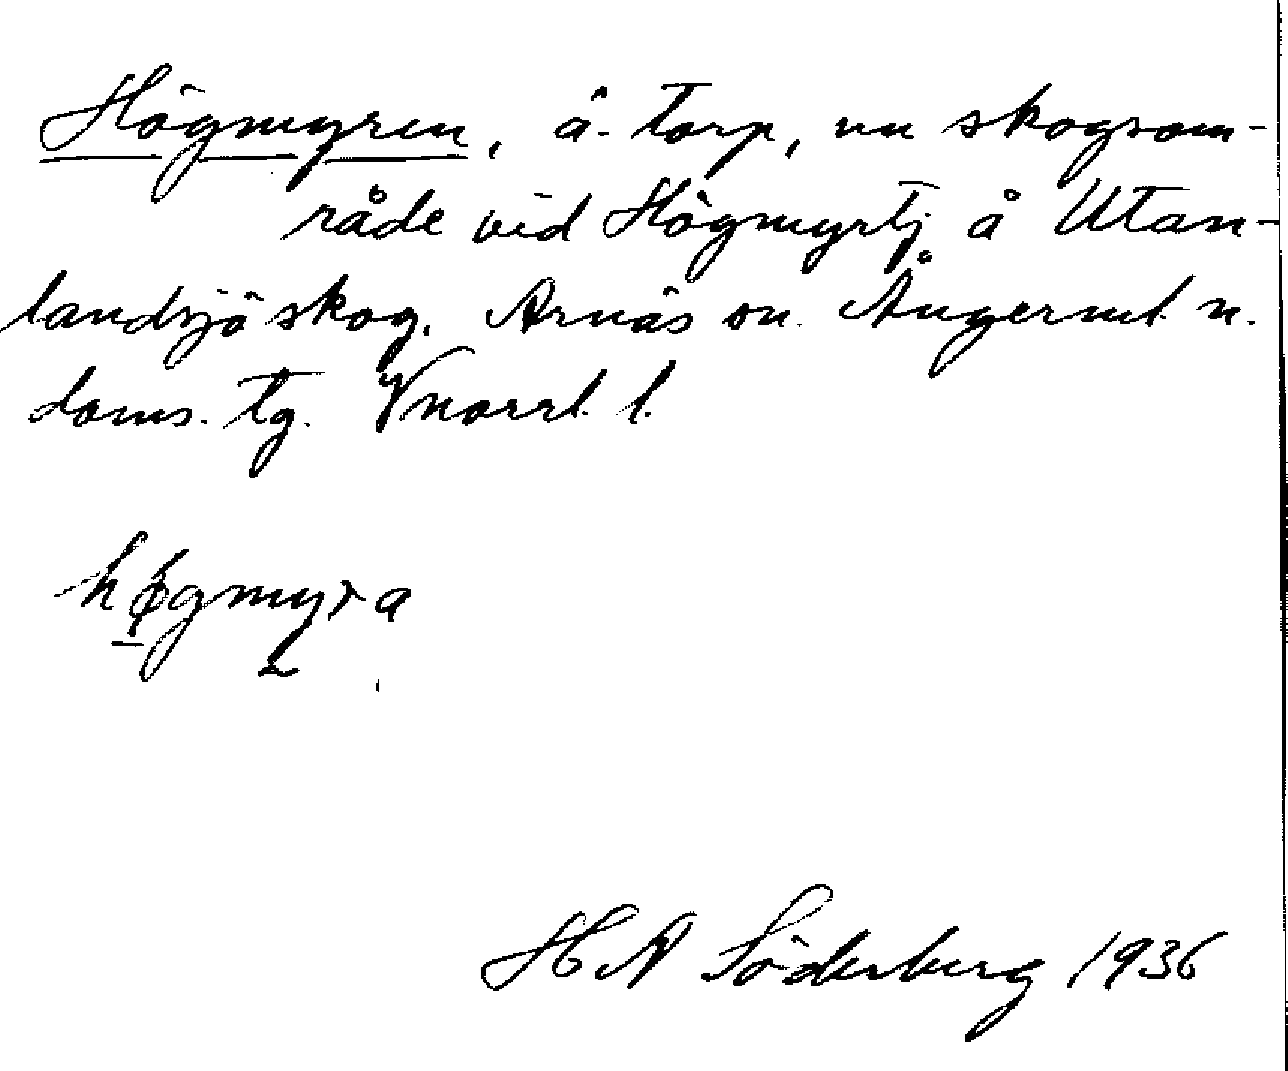 Högmyren, ä. torp, nu skogsom-
råde vid Högmyrtj å Utan-
landsjö skog. Arnäs sn. Ångerml. n.
doms. tg. Vnorrl. l.
høgmyra
H A Söderberg 1936